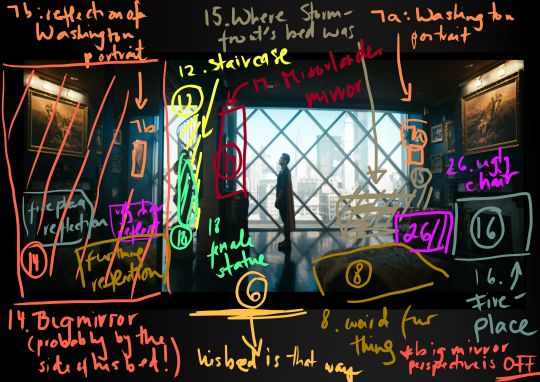 7b: reflection of
Washington
portrait
15. Where Storm-
front's bed was
7a: Washington
portrait
12. staircase
17. Mirrorlander
mirror
12
7b
17
26. ugly
chair
fireplace
reflection
ugly chair
18
18
female
statue
26
16
14
furthing
reflection
6
8
16.
Fire-
place
14. Big mirror
(probably by the
side of his bed!)
his bed is that way
8. weird fur
thing
*big mirror
perspective is OFF